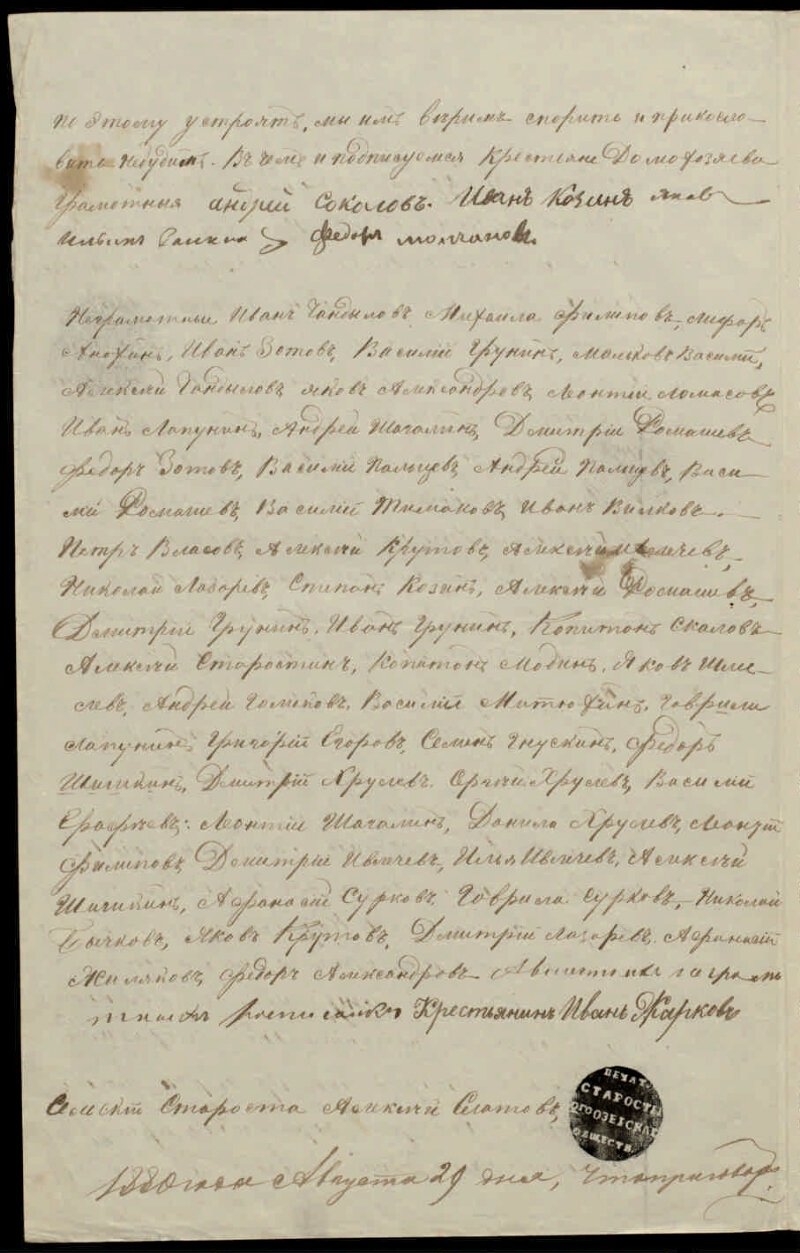 по этому устроятъ, мы имъ вѣримъ спорить и прикосло-
вить небудимъ. Въ чемъ и подписуемся Крестьяне Домохозяева
Грамотныя андрей соколовъ. Иванъ Козинъ яковъ
Ильинъ федоръ молчановъ.
Неграмотныи Иванъ Гандыловъ Михаила Филиповъ,
Анохинъ, Иванъ Зотовъ, Василий Грунинъ, Маливовъ Василий,
Алексей Гандыловъ яковъ Александровъ, Леонтий Ломасовъ
Иванъ Лапунинъ, Андрей Шагалинъ, Дмитрий Ромашевъ
Федоръ Зотовъ, Василий Пальцевъ, Андрей Пальцевъ, Васи-
лий Ромашевъ, Василий Тимаковъ, Иванъ Вилковъ.
Петръ Власовъ, Алексей Крутовъ, Алексей Ивличевъ,
Николай Лазаревъ, Степанъ Козинъ, Алексей Ромашевъ,
Дмитрий Грунинъ, Иванъ Грунинъ, Копитонъ Скаловъ
Алексей Старостинъ, Копитонъ Модинъ, Яковъ Шме-
левъ, Андрей Голиковъ, Василий Митюхинъ, Гаврила
Лапунинъ, Григорий Егоровъ, Семенъ Гнускинъ, Федоръ
Шишкинъ, Дмитрий Хрулевъ. Сергей Хрулевъ, Василий
Ерофеевъ. Леонтий Шагалинъ, Данила Хрулевъ, Леонтий
Филиповъ, Дмитрий Ивличевъ, Илья Ивличевъ, Алексей
Шишикинъ, Афанасий Сурковъ, Гаврила Сурковъ, Николай
Бычковъ, Яковъ Крутовъ, Дмитрий Лазаревъ, Афанасий
Миляковъ, Федоръ Александровъ А вместо ихъ неграмо
тныхъ росписался Крестьянинъ Иванъ Жарковъ
Сельский Староста Алексей Слатовъ,
ПЕЧАТ.
СТАРОСТЫ
ОБЩЕСТВ.
1880 года Августа 29 дня, Что приговоръ